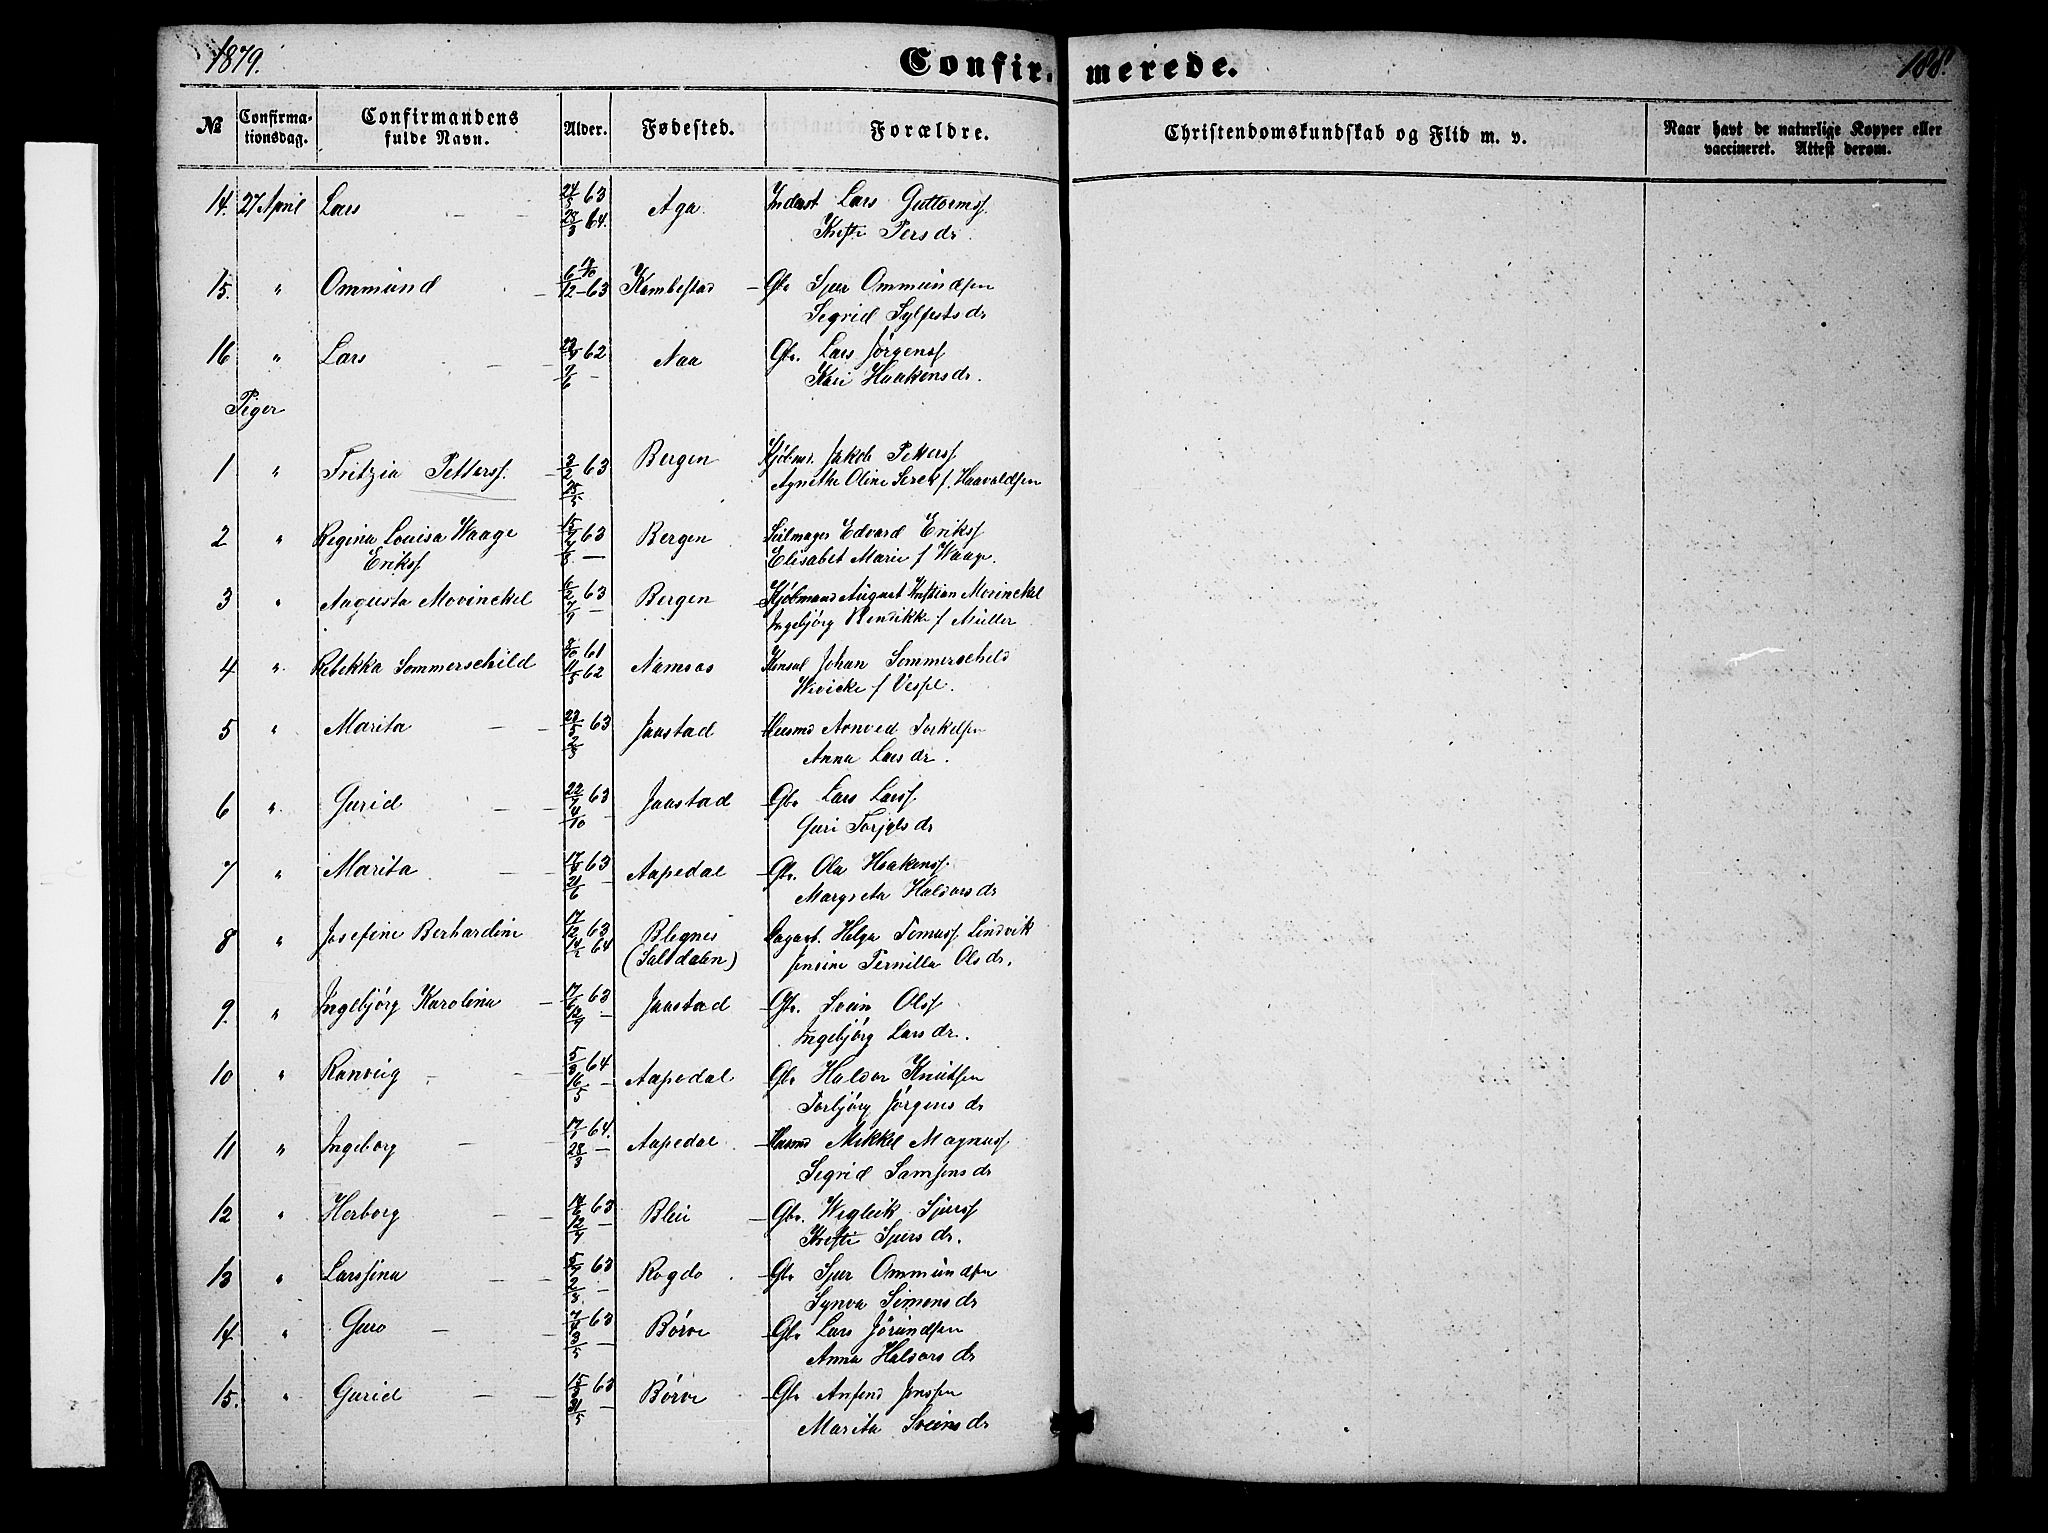 1879.
Confirmerede.
188.
№ Confirmationsdag. Confirmandens fulde Navn. Alder. Fødested. Forældre. Christendomskundskab og Flid m. v. Naar havt de naturlige Kopper eller vaccineret. Attest derom.
14. 27 April Lars 63 Aga Inderst Lars Guttormsf.
64. Persdr.
15. " Ommund 6/12 - 63 Kambestad Gbr Sjur Ommundsen
Segrid Sylfestsdr
16 " Lars 62 Aaa Gbr. Lars Jørgensf
Kari Haakensdr.
Piger
1 " Fritzia Pettersf. 63 Bergen Kjøbm. Jakob Pettersf.
Agnethe Oline f. Haavaldsen
2 " Regina Louisa Waage 63 Bergen Seilmager Edvard Eriksf
Eriksf Elisabet Marie f Waage.
3 " Augusta Movinckel 63 Bergen Kjøbmand August Kristian Movinckel
Ingebjørg Hendikke f Müller
4 " Rebekka Sommerschild 61 Namsos Konsul Johan Sommerschild
11/5 62 Wivicke f
5 " Marita 63 Jaastad Husmd Arnved Torkelsen
Anna Larsdr.
6 " Gurid 22/7 63 Jaastad Gbr Lars Larsf
Guri Torjelsdr
7 " Marita 63 Aapedal Gbr. Ola Haakensf.
21/6 Margreta Haldorsdr
8 " Josefine Berhardine 17/12 63 Blegnes Helge Lindvik
64 (Saltdalen) Jensine Pernilla Olsdr.
9. " Ingebjørg Karolina 63 Jaastad Gbr. Svein Olsf
Ingebjørg Larsdr.
10 " Ranveig 5/3 64 Aapedal Gbr Haldor Knutsen
16/5 Torbjørg Jørgensdr
11 " Ingeborg 64. Aapedal Husmd Mikkel Magnusf
28/3 Segrid Samsonsdr
12 " Herborg 63 Bleie Gbr. Wigleik Sjursf
Kristi Sjursdr.
13 " Larssina 63 Rogde Gbr Sjur Ommundsen
Synva Simonsdr
14. " Guro 63 Børve Gbr Lars Jørundsen
Anna Haldorsdr
15. " Gurid 63 Børve Gbr Anfind Jonssen
Marita Sveinsdr